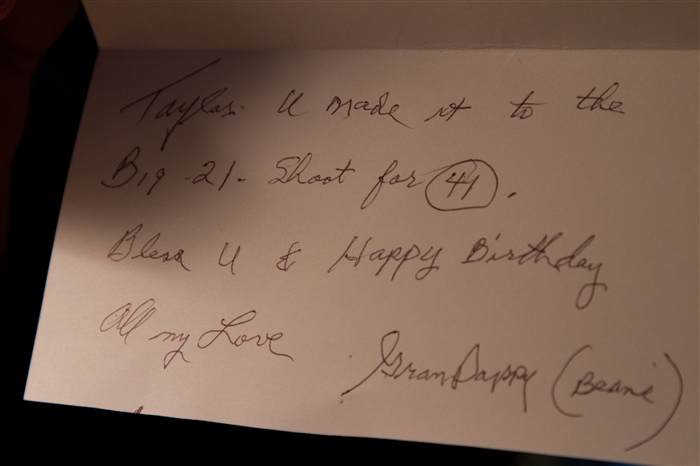 Taylor. U made it to the
Big -21- Shoot for 41.
Bless U & Happy Birthday
All my Love GranDappy (Beanie)